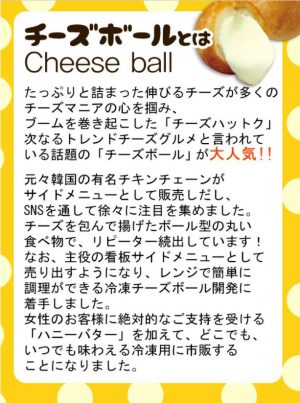 チーズボールとは
Cheese ball
たっぷりと詰まった伸びるチーズが多くの
チーズマニアの心を掴み、
ブームを巻き起こした「チーズハットク」
次なるトレンドチーズグルメと言われて
いる話題の「チーズボール」が大人気!!
元々韓国の有名チキンチェーンが
サイドメニューとして販売しだし、
SNSを通して徐々に注目を集めました。
チーズを包んで揚げたボール型の丸い
食べ物で、リピーター続出しています!
なお、主役の看板サイドメニューとして
売り出すようになり、レンジで簡単に
調理ができる冷凍チーズボール開発に
着手しました。
女性のお客様に絶対的なご支持を受ける
「ハニーバター」を加えて、どこでも、
いつでも味わえる冷凍用に市販する
ことになりました。